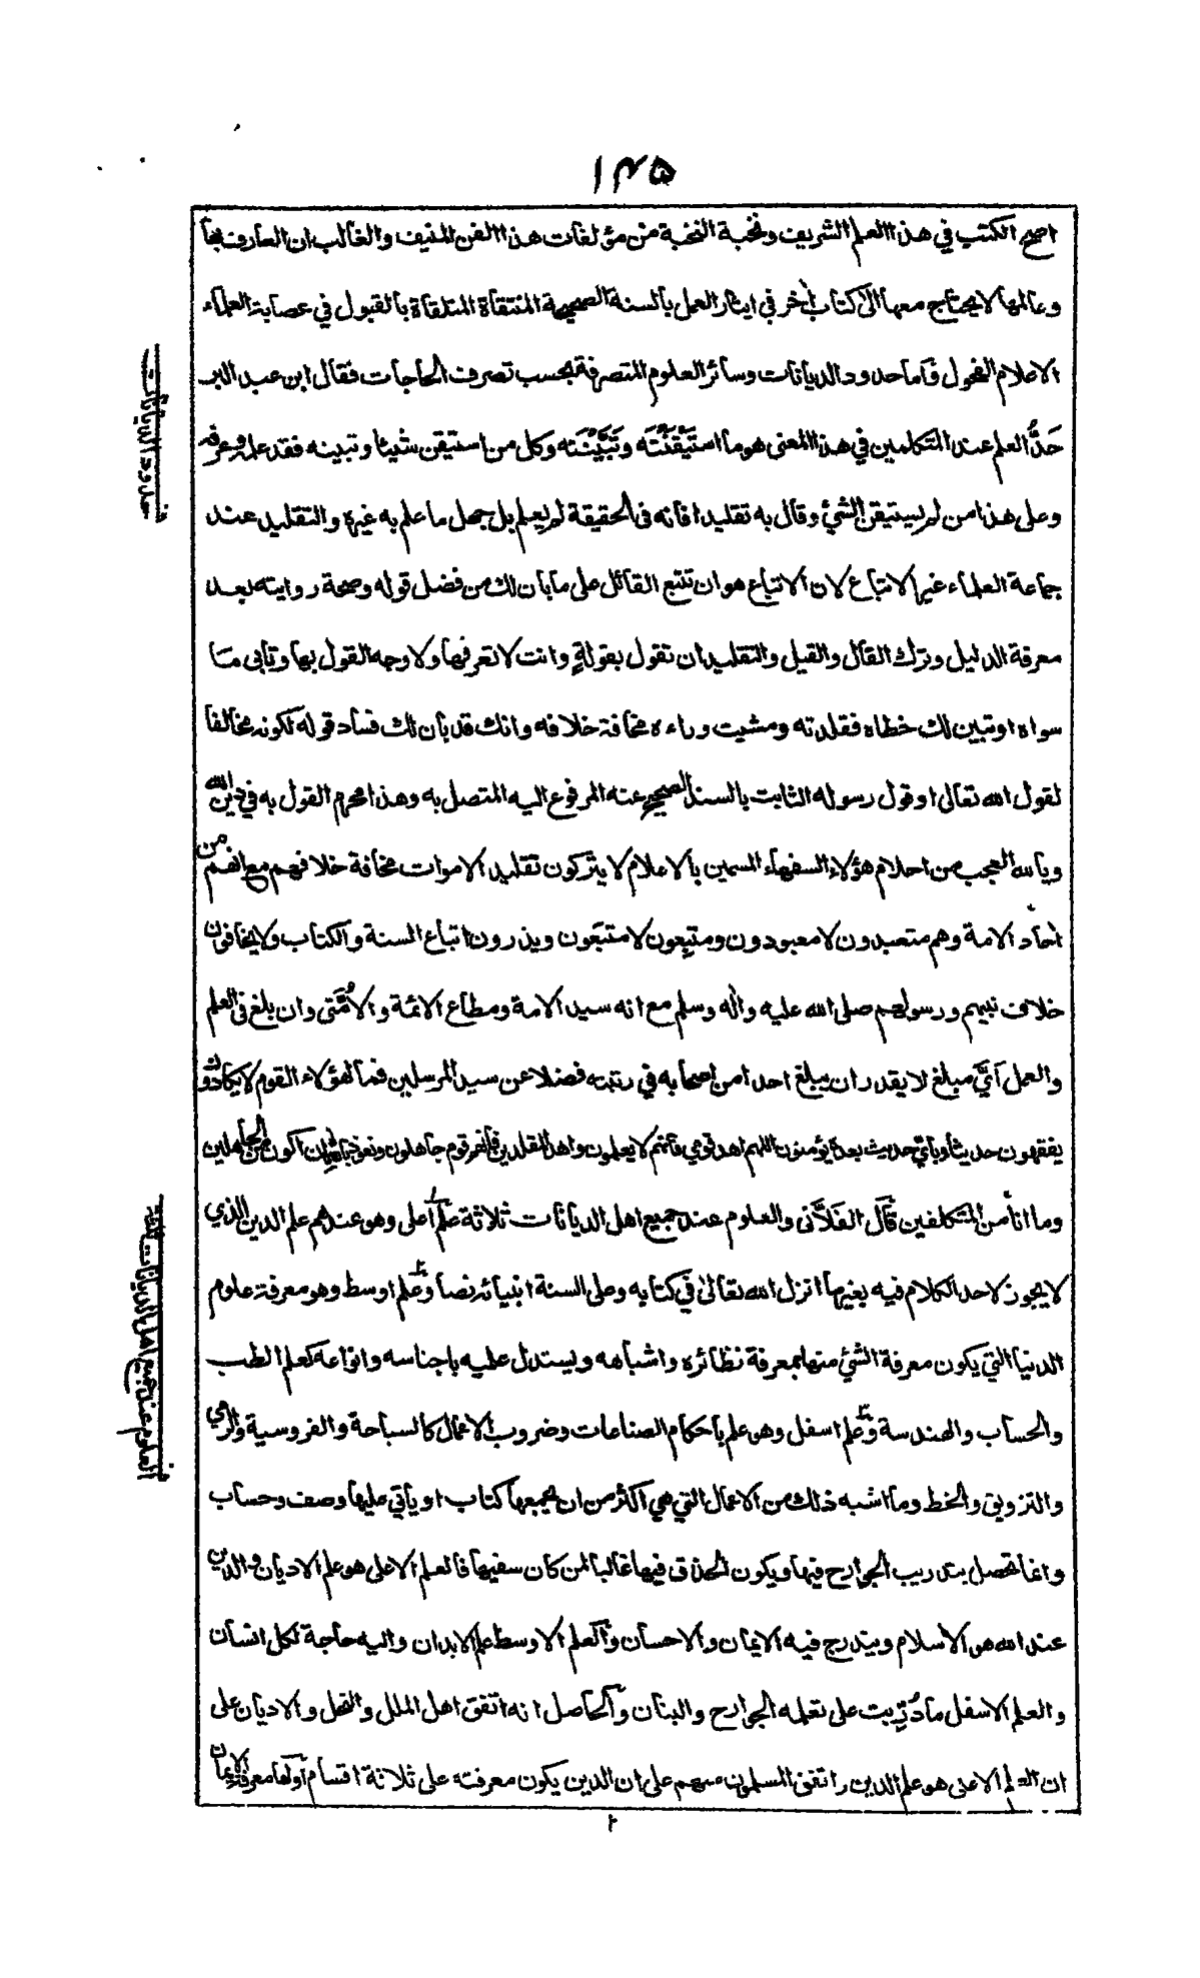 ١٣٥
اصح الكتب في هذا العلم الشريف ونخبة النخبة من مؤلفات هذا الفن المنيف والغالب ان العارف بها
وعالمها لا يحتاج معها الى كتاب اٰخر في ايثار العمل بالسنة الصحيحة المنتقاة المتلقاة بالقبول في عصابة العلماء
الاعلام الفحول وآما حدود الديانات وسائر العلوم المتصرفة بحسب تصرف الحاجات فقال ابن عبد البر
حَدُّ العلم عند المتكلمين في هذا المعنى هو ما استَيْقَنْتَه وتَبَيَّنْتَه وكل من استيقن شيئا وتبينه فقد علمه وعرفه
وعلى هذا من لم يستيقن الشيئ وقال به تقليدا فانه فى الحقيقة لم يعلم بل جهل ما علم به غيره والتقليد عند
جماعة العلماء غير الاتباع لان الاتباع هو ان تتبع القائل على ما بان لك من فضل قوله وصحة روايته بعد
معرفة الدليل وترك القال والقيل والتقليد ان تقول بقولهٍ وانت لا تعرفها ولا وجه القول بها وتأبى ما
سواه او تبين لك خطاه فقلدته ومشيت وراءه مخافة خلافه وانك قد بان لك فساد قوله لكونه مخالفا
لقول الله تعالى او قول رسوله الثابت بالسند الصحيح عنه المرفوع اليه المتصل به وهذا محرم القول به في دين الله
ويالله العجب من احلام هؤلاء السفهاء المسمين بالاعلام لا يتركون تقليد الاموات مخافة خلافهم مع انهم من
اٰحاد الامة وهم متعبدون لا معبودون ومتبِعون لا متبَعون ويذرون اتباع السنة والكتاب ولا يخافون
خلاف نبيهم ورسولهم صلى الله عليه واٰله وسلم مع انه سيد الامة ومطاع الائمة والاُمَّتى وان بلغ فى العلم
والعمل اَيَّ مبلغ لا يقدر ان يبلغ احدا من اصحابه في رتبته فضلا عن سيد المرسلين فما لهؤلاء القوم لا يكادون
يفقهون حديثا وباَيّ حديث بعده يؤمنون اللهم اهد قومي فانهم لا يعلمون واهد المقلدين فانهم قوم جاهلون ونعوذ بالله ان اكون من الجاهلين
وما انا من المتكلفين قآل الفُلَّانى والعلوم عند جميع اهل الديانات ثلاثة علم اعلى وهو عندهم علم الدين الذي
لا يجوز لاحد الكلام فيه بغير ما انزل الله تعالى في كتابه وعلى السنة انبيائه نصا وعلم اوسط وهو معرفة علوم
الدنيا التي يكون معرفة الشيئ منها بمعرفة نظائره واشباهه ويستدل عليه باجناسه وانواعه كعلم الطب
والحساب والهندسة وعلم اسفل وهو علم باحكام الصناعات وضروب الاعمال كالسباحة والفروسية والرمي
والتزويق والخط وما اشبه ذلك من الاعمال التي هي اكثر من ان يجمعها كتاب او يأتي عليها وصف وحساب
وانما تحصل بتدريب الجوارح فيها ويكون الحذق فيها غالبا لمن كان سفيها فالعلم الاعلى هو علم الاديان والدين
عند الله هو الاسلام ويندرج فيه الايمان والاحسان وآلعلم الاوسط علم الابدان واليه حاجة لكل انسان
والعلم الاسفل ما دُرِّبت على تعلمه الجوارح والبنان وآلحاصل انه اتفق اهل الملل والنحل والاديان على
ان العلم الاعلى هو علم الدين واتفق المسلمون منهم على ان الدين يكون معرفته على ثلاثة اقسام اولها معرفة الايمان
حدود الديانات
العلوم عند جميع اهل الديانات ثلاثة
٢